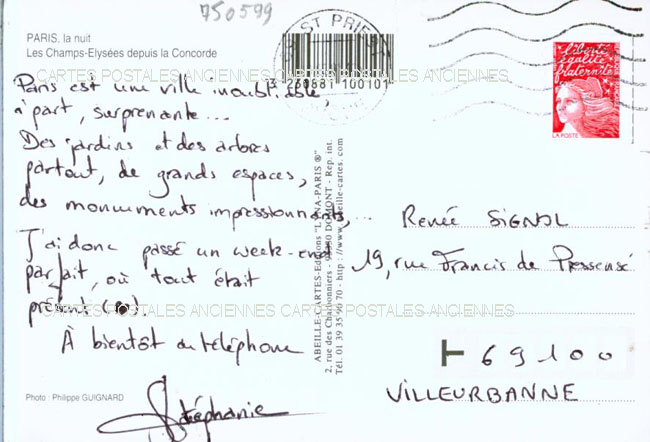 750599
PARIS, la nuit
Les Champs-Elysées depuis la Concorde
ST PRIE
3 260881 100101
liberté
égalité
fraternité
LA POSTE
CARTES POSTALES ANCIENNES CARTES POSTALES ANCIENNES
Paris est une ville inoubliable,
à part, surprenante...
Des jardins et des arbres
partout, de grands espaces,
des monuments impressionnants,...
J'ai donc passé un week-end
parfait, où tout était
présent
CARTES POSTALES ANCIENNES CARTES POSTALES ANCIENNES
À bientôt au téléphone
Stéphanie
Photo : Philippe GUIGNARD
ABEILLE-CARTES-Editions "LYNA-PARIS ®"
2, rue des Charbonniers - DOMONT - Rep. int.
Tél. 01 39 35 70 - http://www.abeille-cartes.com
Renée SIGNOL
19, rue Francis de Pressensé
69100
VILLEURBANNE